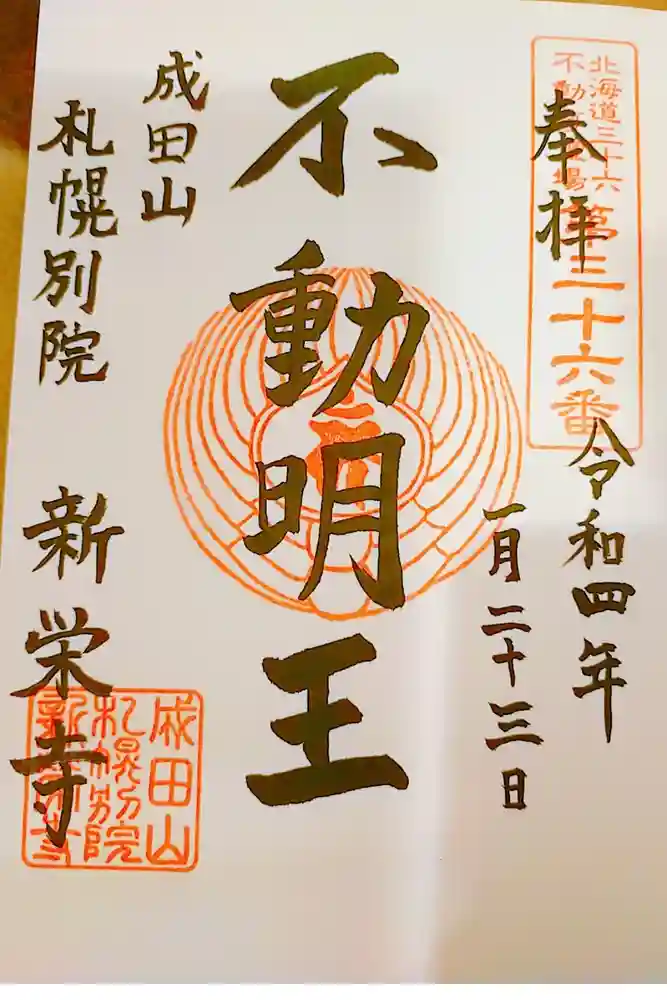 北海道三十六
不動尊霊場
第三十六番
奉拝
令和四年
一月二十三日
不動明王
成田山
札幌別院
新栄寺
成田山
札幌別院
新栄寺